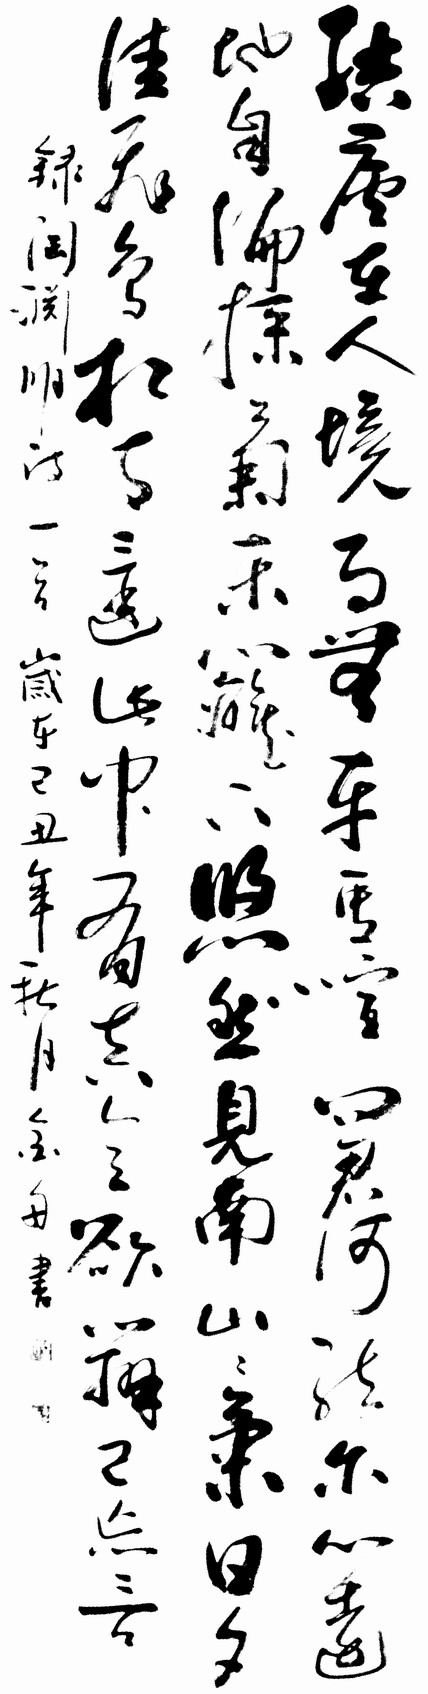 結廬在人境而無車馬喧問君何能尔心遠
地自偏採菊東籬下悠然見南山〻氣日夕
佳飛鳥相与還此中有真意欲辯已忘言
錄陶淵明詩一首歲在己丑年秋月金舟書